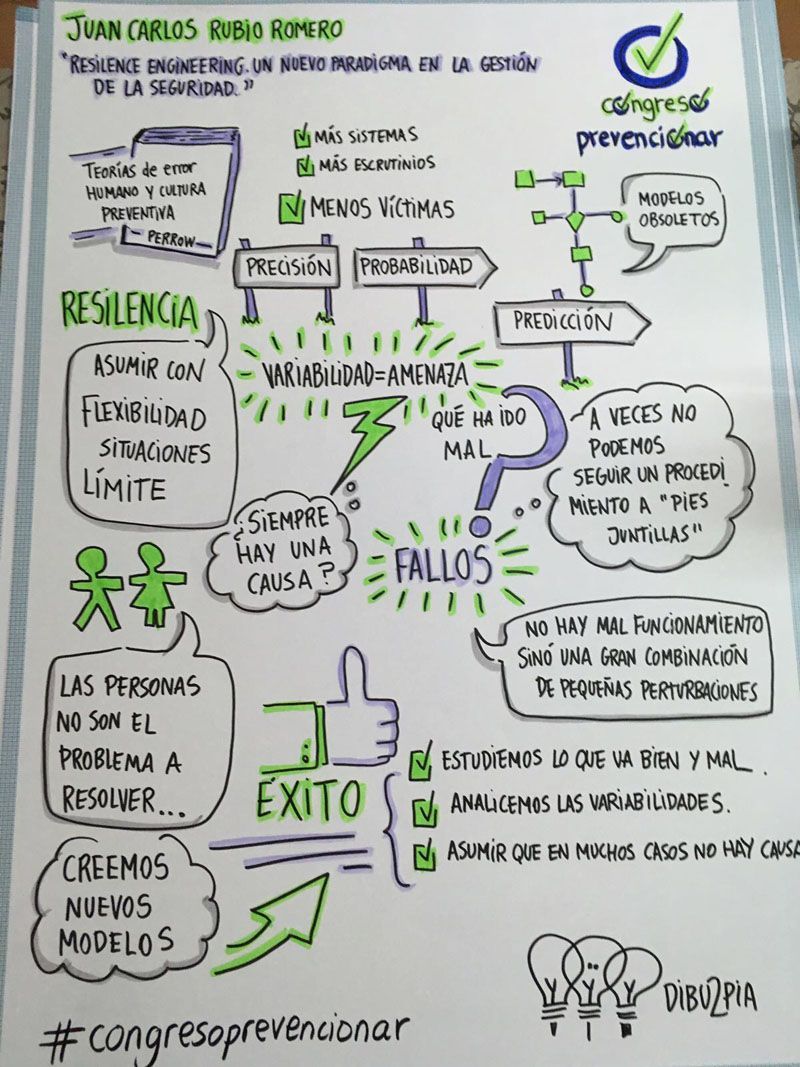 JUAN CARLOS RUBIO ROMERO
"RESILENCE ENGINEERING. UN NUEVO PARADIGMA EN LA GESTIÓN
DE LA SEGURIDAD."
congreso
prevencionar
TEORÍAS de error
HUMANO Y CULTURA
PREVENTIVA
PERROW
MÁS SISTEMAS
MÁS ESCRUTINIOS
MENOS VÍCTIMAS
MODELOS
OBSOLETOS
PRECISIÓN
PROBABILIDAD
PREDICCIÓN
RESILENCIA
ASUMIR CON
FLEXIBILIDAD
SITUACIONES
LÍMITE
VARIABILIDAD=AMENAZA
QUÉ HA IDO
MAL
A VECES NO
PODEMOS
SEGUIR UN PROCEDI
MIENTO A "PIES
JUNTILLAS"
¿SIEMPRE
HAY UNA
CAUSA?
FALLOS
NO HAY MAL FUNCIONAMIENTO
SINÓ UNA GRAN COMBINACIÓN
DE PEQUEÑAS PERTURBACIONES
LAS PERSONAS
NO SON EL
PROBLEMA A
RESOLVER...
ÉXITO
ESTUDIEMOS LO QUE VA BIEN Y MAL.
ANALICEMOS LAS VARIABILIDADES.
ASUMIR QUE EN MUCHOS CASOS NO HAY CAUSA
CREEMOS
NUEVOS
MODELOS
DIBU2PIA
#congresoprevencionar